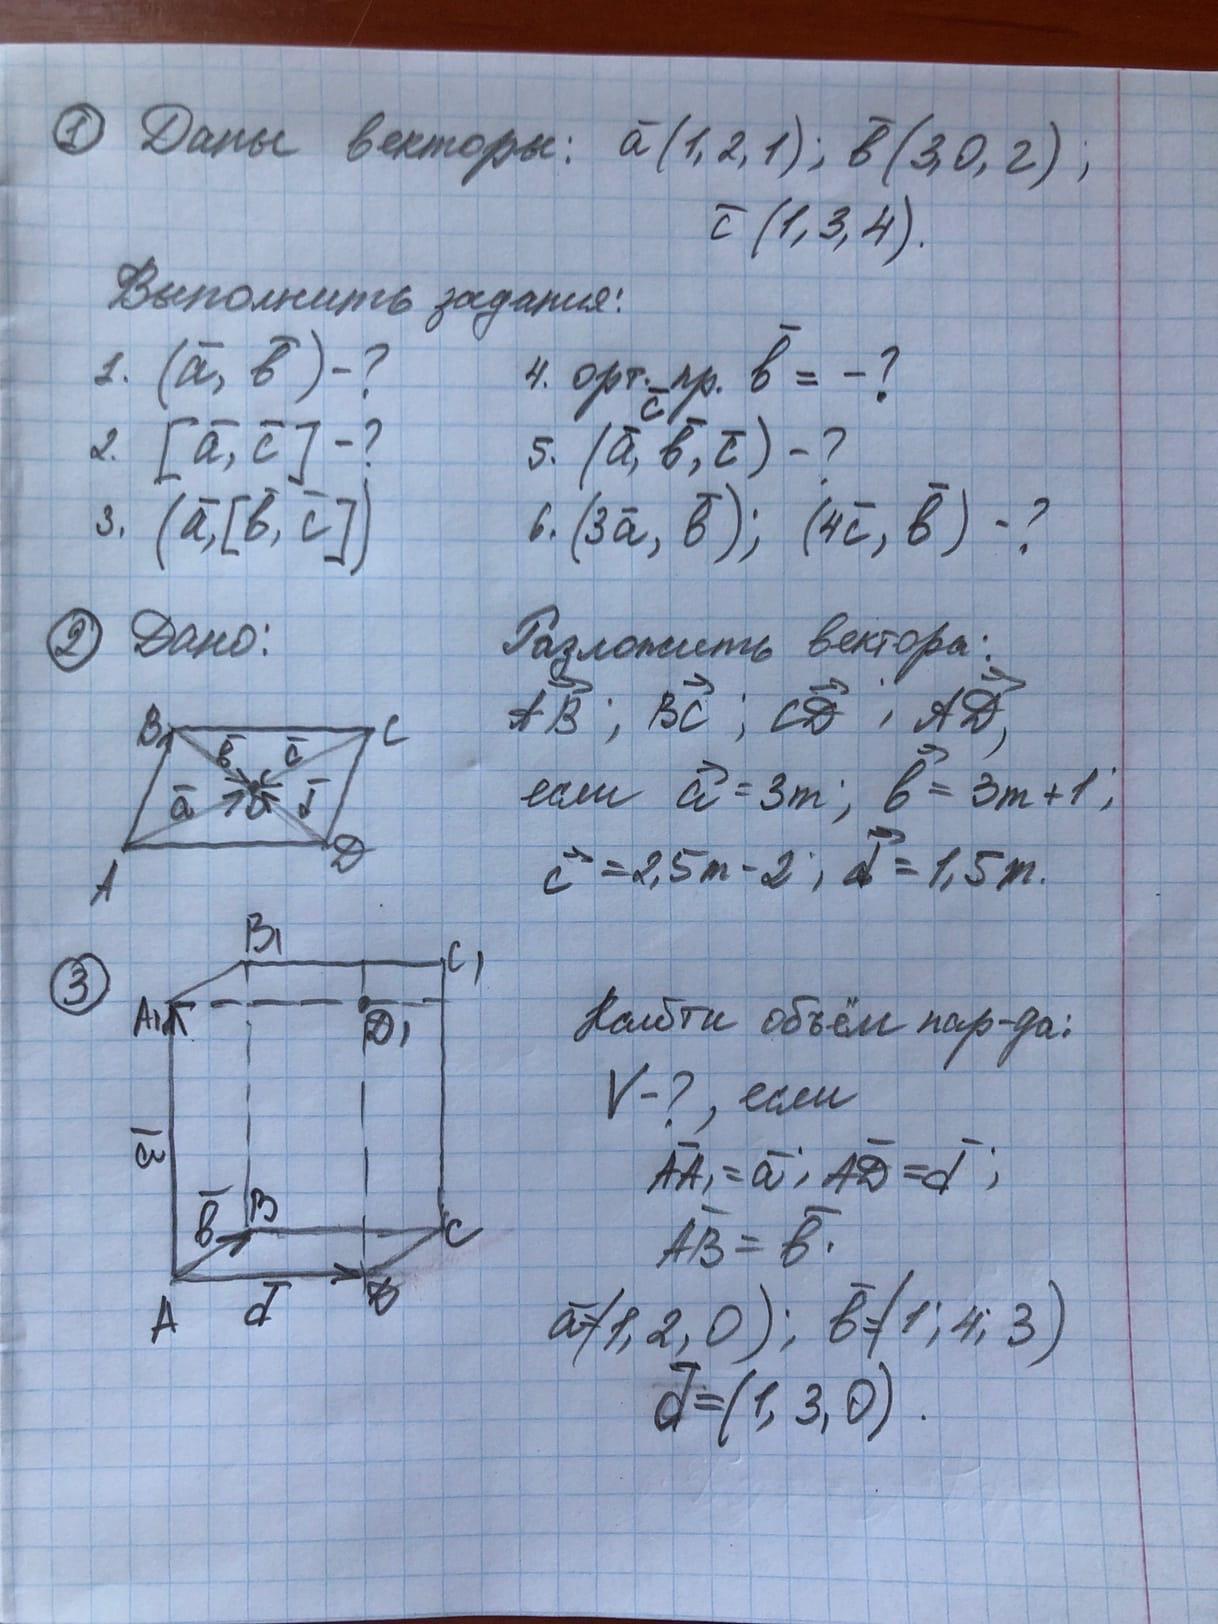 1 Даны векторы: a̅ (1, 2, 1); b̅ (3, 0, 2);
c̅ (1, 3, 4).
Выполнить задания:
1. (a̅, b̅) - ?
4. орт. пр. c̅ b̅ = - ?
2. [a̅, c̅] - ?
5. (a̅, b̅, c̅) - ?
3. (a̅, [b̅, c̅])
6. (3a̅, b̅); (4c̅, b̅) - ?
2 Дано:
Разложить вектора:
B C
b̅ c̅
a̅ O d̅
A D
AB⃗; BC⃗; CD⃗; AD⃗,
если a⃗ = 3m; b⃗ = 3m + 1;
c⃗ = 2,5m - 2; d⃗ = 1,5m.
3
B₁ C₁
A₁ D₁
a̅
b̅ B C
A d̅ D
Найти объём пар-да:
V - ?, если
AA₁ = a̅; AD = d̅;
AB = b̅.
a̅ = (1, 2, 0); b̅ = (1; 4; 3)
d̅ = (1, 3, 0).